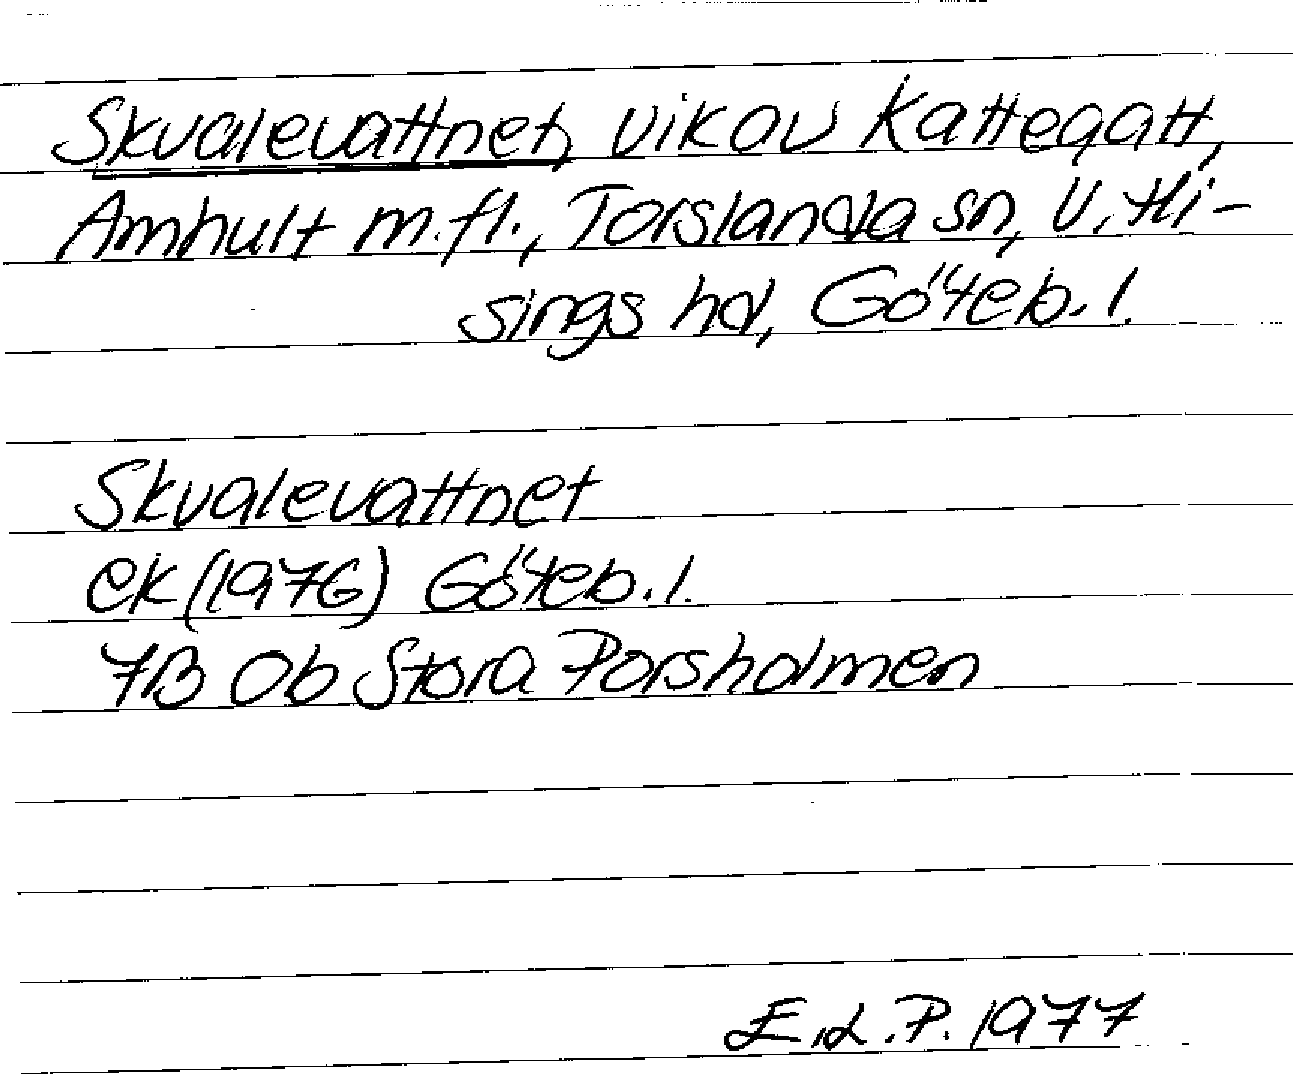 Skvalevattnet, vik av Kattegatt,
Amhult m.fl., Torslanda sn, V. Hi-
sings hd, Göteb. l.
Skvalevattnet
ek (1976) Göteb. l.
7B 0b Stora Porsholmen
E.L.P. 1977